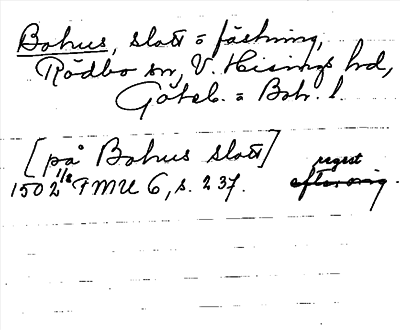 Bohus, slott = fästning,
Rödbo sn, V. Hisings hd,
Göteb. = Boh. l.
[på Bohus slott]
1502 1/8 FMU 6, s. 237. regest efter orig.